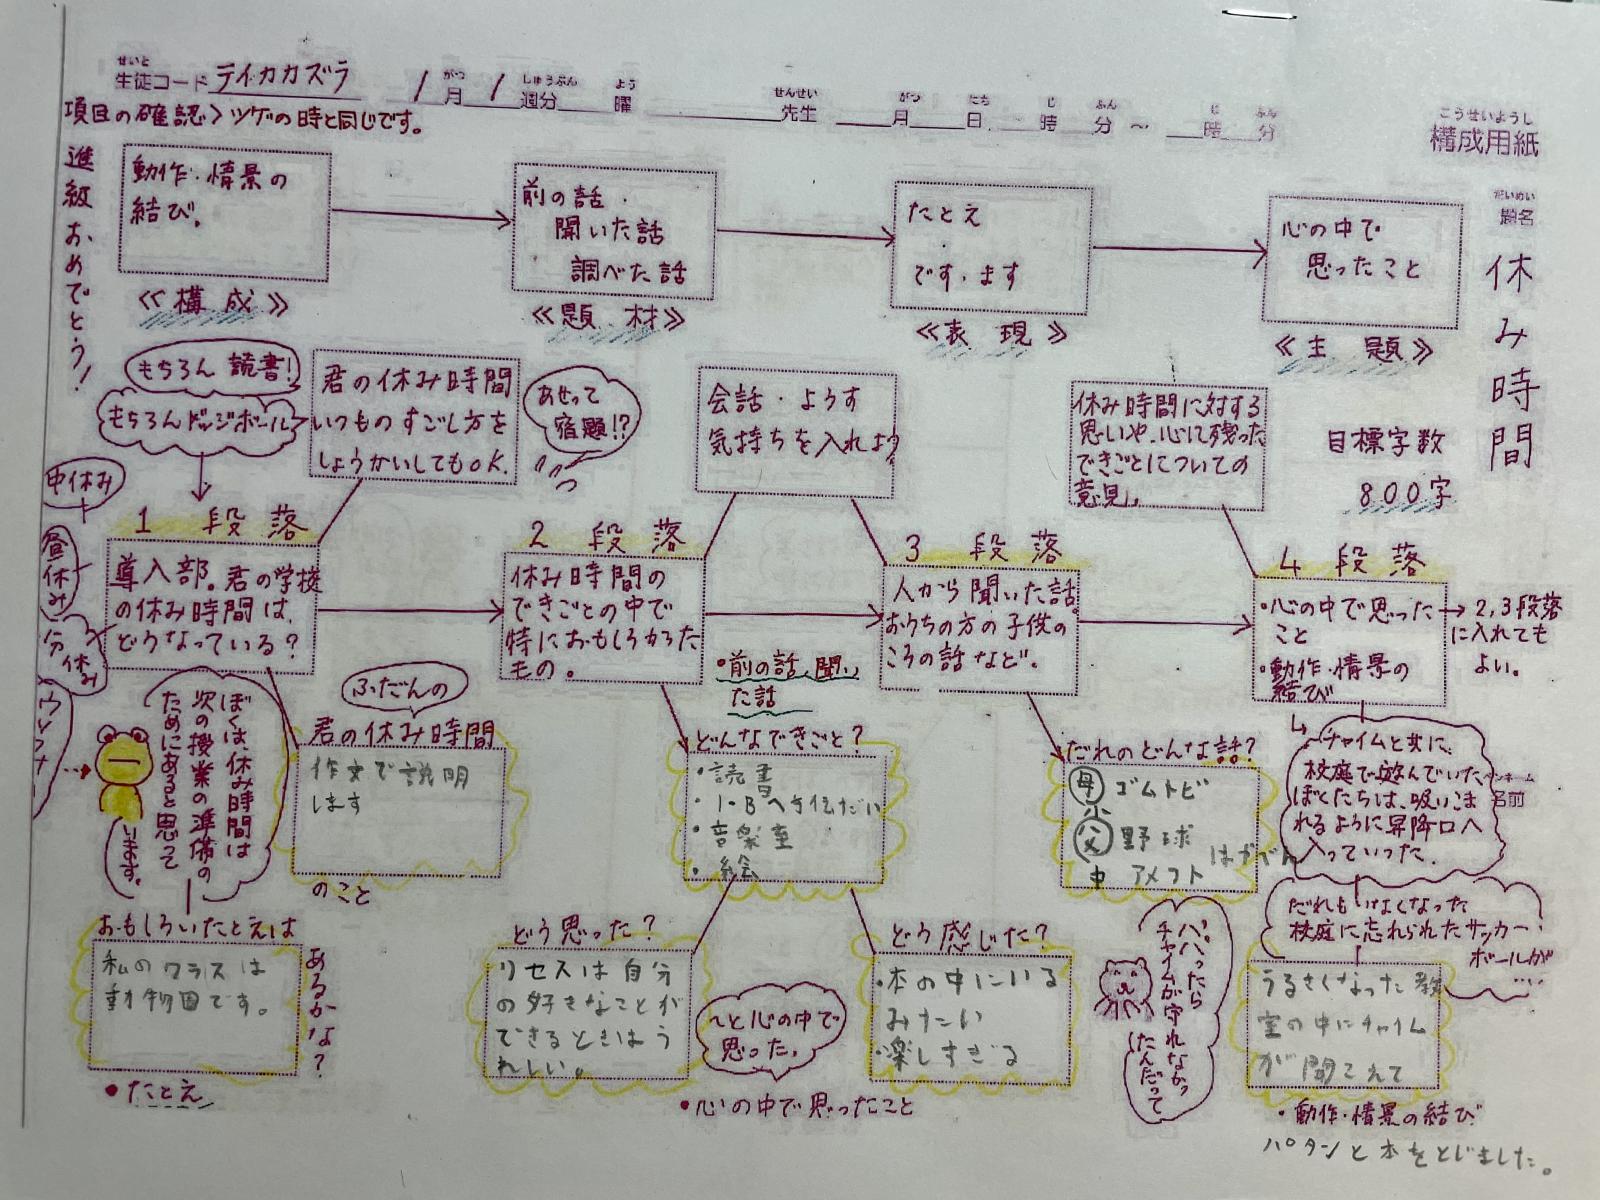 せいと
生徒コード テイカカズラ
がつ しゅうぶん よう
1月1週分 曜
せんせい
先生
がつ にち じ ふん じ ふん
月 日 時 分 ~ 時 分
こうせいようし
構成用紙
項目の確認〉ツゲの時と同じです。
進級おめでとう!
だいめい
題名
休み時間
目標字数
800字
動作・情景の
結び。
≪構成≫
前の話・
聞いた話
調べた話
≪題材≫
たとえ
・
です・ます
≪表現≫
心の中で
思ったこと
≪主題≫
もちろん 読書!
もちろんドッジボール
君の休み時間
いつものすごし方を
しょうかいしてもOK.
あせって
宿題!?
会話・ようす
気持ちを入れよう
休み時間に対する
思いや、心に残った
できごとについての
意見。
中休み
昼休み
分休み
1 段落
導入部。君の学校
の休み時間は、
どうなっている?
2 段落
休み時間の
できごとの中で
特におもしろかった
もの。
・前の話、聞い
た話
3 段落
人から聞いた話。
おうちの方の子供の
ころの話など。
4 段落
・心の中で思った
こと
・動作・情景の
結び
→2,3段落
に入れても
よい。
ぼくは、休み時間は
次の授業の準備の
ためにあると思って
います。
ふだんの
君の休み時間
作文で説明
します
のこと
どんなできごと?
・読書
・1・Bへ手伝だい
・音楽室
・絵
だれのどんな話?
母 ゴムトビ
小
父 野球
中 アメフト
チャイムと共に、
校庭で遊んでいた
ぼくたちは、吸いこま
れるように昇降口へ
入っていった。
ペンネーム
名前
だれもいなくなった
校庭に忘れられたサッカー
ボールが
……
おもしろいたとえは
あるかな?
私のクラスは
動物園です。
・たとえ
どう思った?
リセスは自分
の好きなことが
できるときはう
れしい。
~と心の中で
思った。
・心の中で思ったこと
どう感じた?
・本の中にいる
みたい
・楽しすぎる
パパったら
チャイムが守れなかっ
たんだって
うるさくなった教
室の中にチャイム
が聞こえて
・動作・情景の結び
パタンと本をとじました。